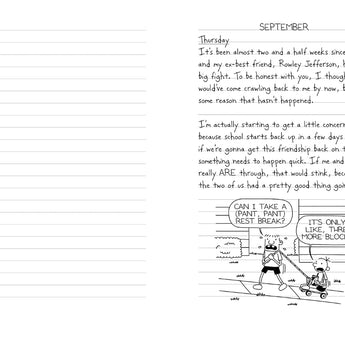 SEPTEMBER
Thursday
It's been almost two and a half weeks since
and my ex-best friend, Rowley Jefferson, h
big fight. To be honest with you, I though
would've come crawling back to me by now, b
some reason that hasn't happened.
I'm actually starting to get a little concern
because school starts back up in a few days
if we're gonna get this friendship back on t
something needs to happen quick. If me and
really ARE through, that would stink, beca
the two of us had a pretty good thing goin
CAN I TAKE A
(PANT, PANT)
REST BREAK?
IT'S ONLY
LIKE, THRE
MORE BLOC